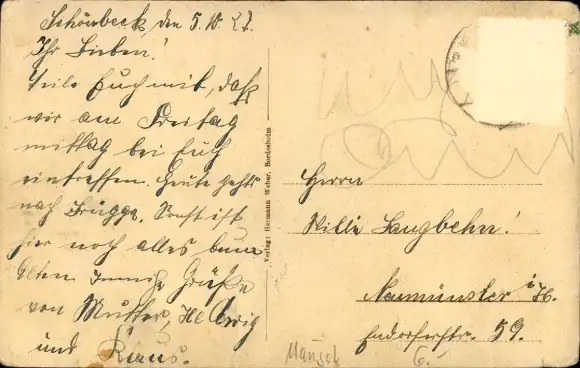 Schönbeck, den 5.10.27.
Ihr Lieben!
teile Euch mit, daß
wir am Freitag
mittag bei Euch
eintreffen. Heute gehts
nach Brügge. Sonst ist
hier noch alles beim
Alten. Innige Grüße
von Mutter, Hedwig
und Klaus.
Verlag: Hermann Weber, Bordesholm
Herrn
Willi Langbehn!
Neumünster i. H.
59.